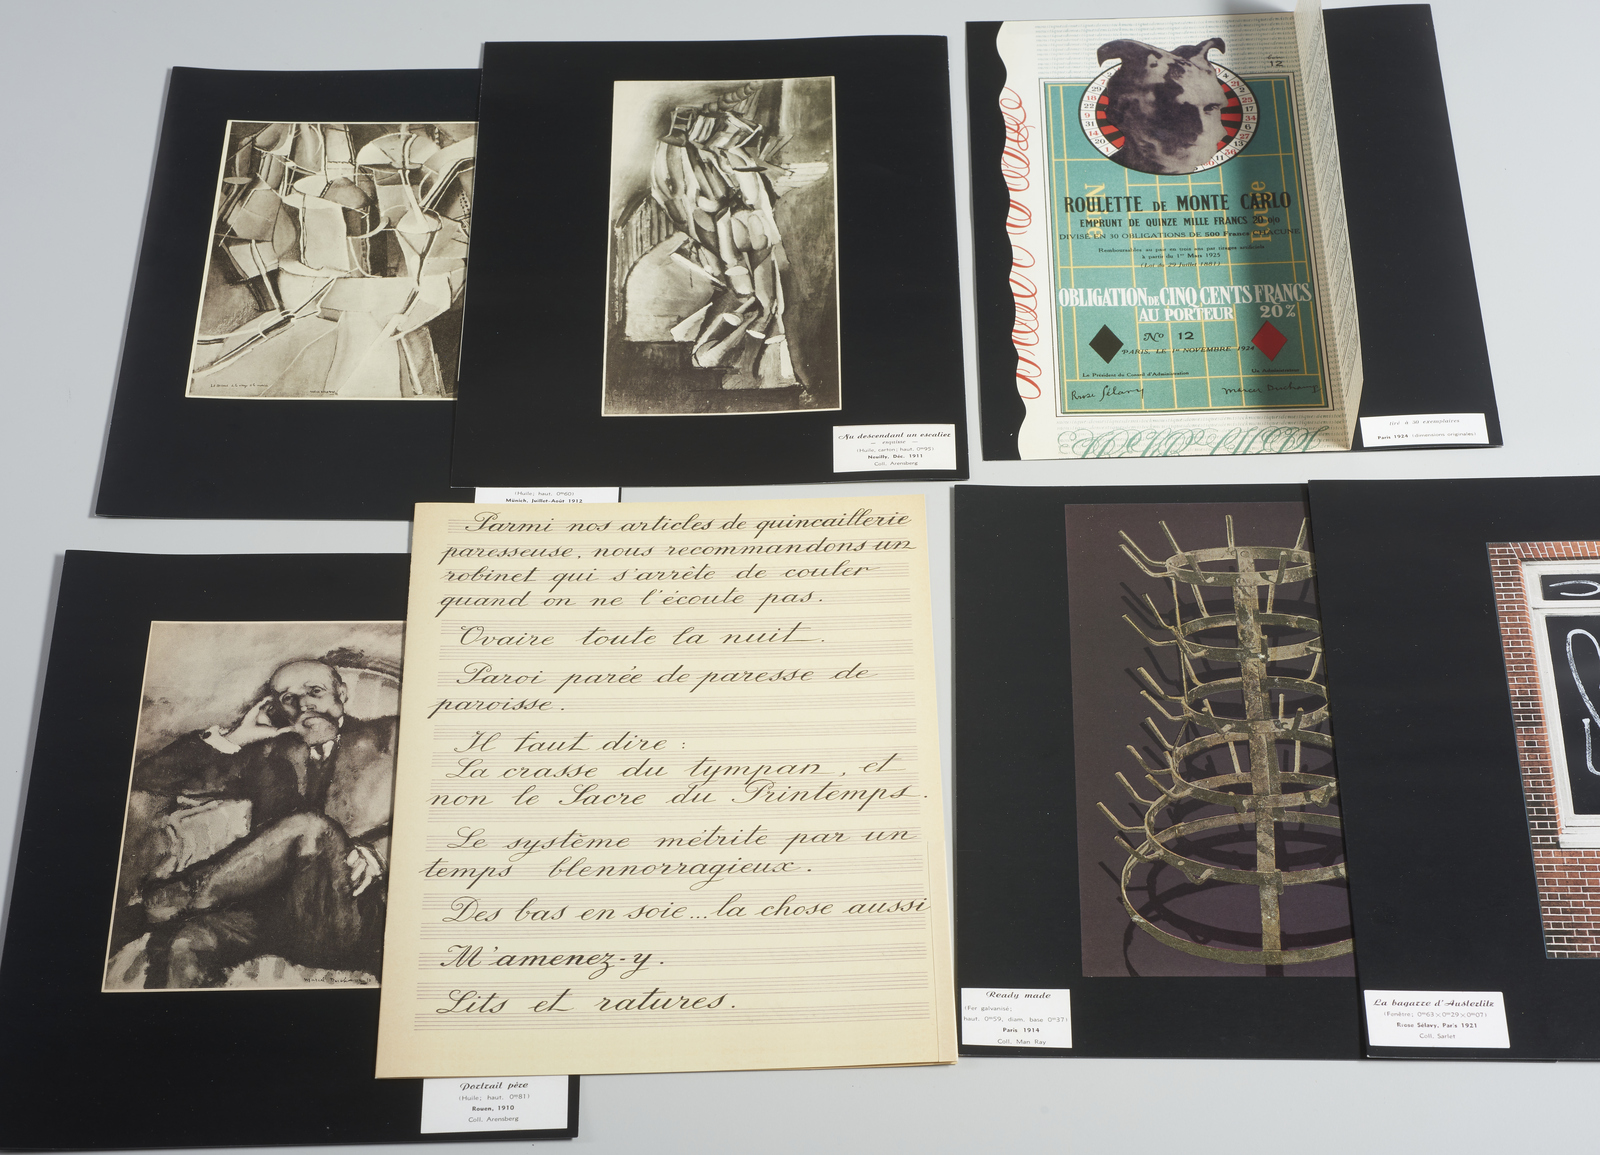 (Huile; haut. 0m60)
Munich, Juillet-Août 1912
Nu descendant un escalier
— esquisse —
(Huile, carton; haut. 0m95)
Neuilly, Déc. 1911
Coll. Arensberg
12
ROULETTE DE MONTE CARLO
EMPRUNT DE QUINZE MILLE FRANCS 20 0/0
DIVISÉ EN 30 OBLIGATIONS DE 500 Francs CHACUNE
Remboursables au pair en trois ans par tirages artificiels
à partir du 1er Mars 1925
(Loi du 29 Juillet 1881)
OBLIGATION DE CINQ CENTS FRANCS
AU PORTEUR 20%
No 12
PARIS, LE 1er NOVEMBRE 1924
Le Président du Conseil d'Administration
Un Administrateur
Rrose Sélavy
Marcel Duchamp
tiré à 30 exemplaires
Paris 1924 (dimensions originales)
Parmi nos articles de quincaillerie
paresseuse, nous recommandons un
robinet qui s'arrête de couler
quand on ne l'écoute pas.
Ovaire toute la nuit.
Paroi parée de paresse de
paroisse.
Il faut dire :
La crasse du tympan, et
non le Sacre du Printemps.
Le système métrite par un
temps blennorragieux.
Des bas en soie...la chose aussi
M'amenez-y.
Lits et ratures.
Portrait père
(Huile; haut. 0m81)
Rouen, 1910
Coll. Arensberg
Ready made
(Fer galvanisé;
haut. 0m59, diam. base 0m37)
Paris 1914
Coll. Man Ray
La bagarre d'Austerlitz
(Fenêtre; 0m63 x 0m29 x 0m07)
Rrose Sélavy, Paris 1921
Coll. Sarlet